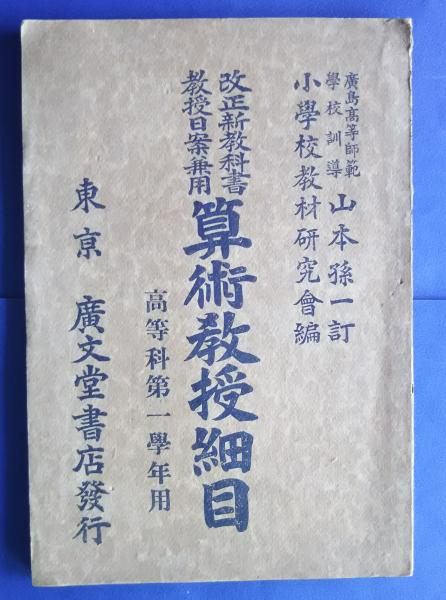 廣島高等師範
學校訓導
山本孫一訂
小學校教材研究會編
改正新教科書
教授日案兼用
算術教授細目
高等科第一學年用
東京 廣文堂書店發行